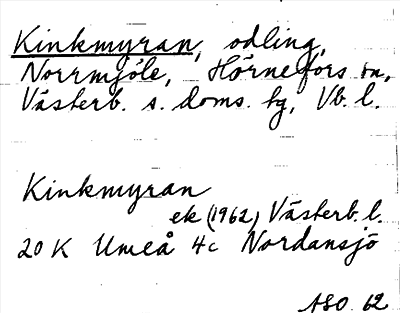 Kinkmyran, odling,
Norrmjöle, Hörnefors sn,
Västerb. s. doms. tg, Vb. l.
Kinkmyran
ek (1962) Västerb. l.
20 K Umeå 4c Nordansjö
ASO 62